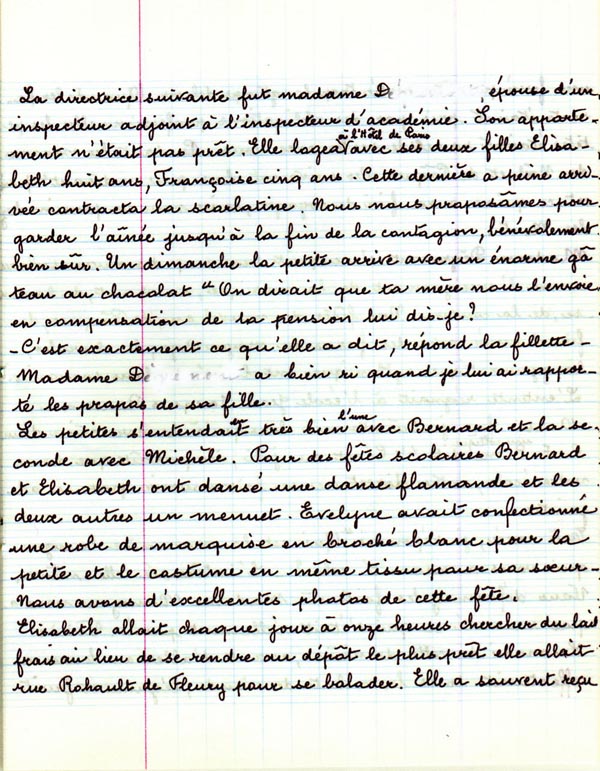 La directrice suivante fut madame D épouse d'un
inspecteur adjoint à l'inspecteur d'académie. Son apparte-
ment n'était pas prêt. Elle logea à l'Hôtel de Paris avec ses deux filles Elisa-
beth huit ans, Françoise cinq ans. Cette dernière a peine arri-
vée contracta la scarlatine. Nous nous proposâmes pour
garder l'aînée jusqu'à la fin de la contagion, bénévolement
bien sûr. Un dimanche la petite arrive avec un énorme gâ
teau au chocolat "On dirait que ta mère nous l'envoie
en compensation de la pension lui dis-je?
-C'est exactement ce qu'elle a dit, répond la fillette-
Madame D a bien ri quand je lui ai rappor-
té les propos de sa fille.
Les petites s'entendait très bien l'une avec Bernard et la se-
conde avec Michèle. Pour des fêtes scolaires Bernard
et Elisabeth ont dansé une danse flamande et les
deux autres un menuet. Evelyne avait confectionné
une robe de marquise en broché blanc pour la
petite et le costume en même tissu pour sa sœur-
Nous avons d'excellentes photos de cette fête.
Elisabeth allait chaque jour à onze heures chercher du lait
frais au lieu de se rendre au dépôt le plus prêt elle allait
rue Rohault de Fleury pour se balader. Elle a souvent reçu